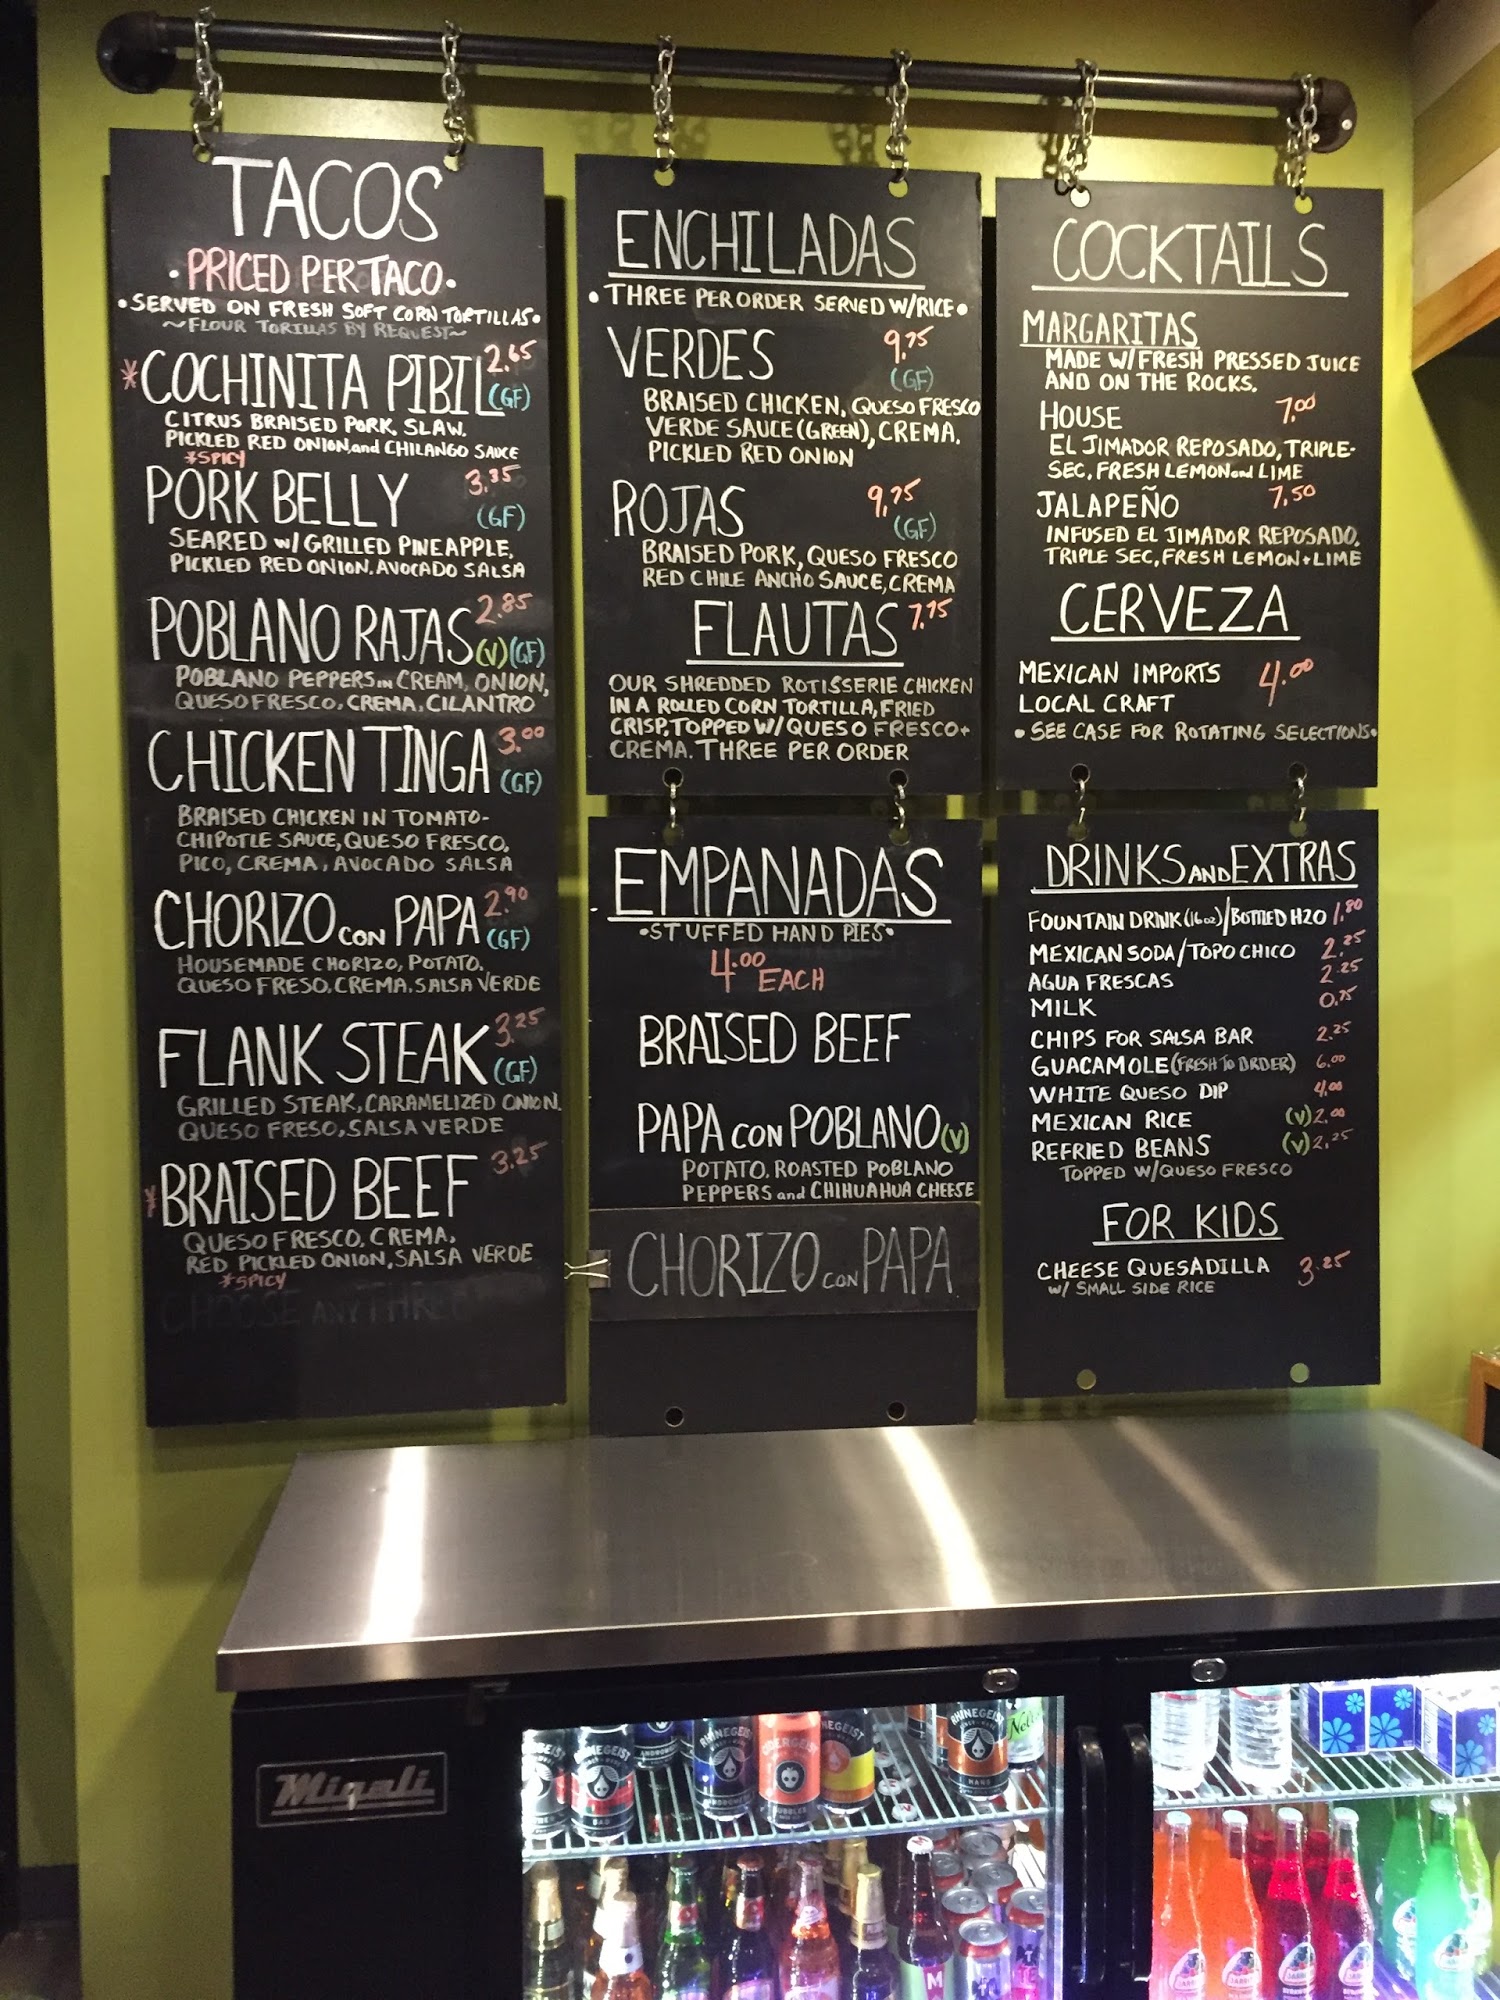 TACOS
• PRICED PER TACO •
• SERVED ON FRESH SOFT CORN TORTILLAS •
~ FLOUR TORILLAS BY REQUEST ~
* COCHINITA PIBIL 2.65 (GF)
CITRUS BRAISED PORK, SLAW,
PICKLED RED ONION, and CHILANGO SAUCE
*SPICY
PORK BELLY 3.35 (GF)
SEARED W/ GRILLED PINEAPPLE,
PICKLED RED ONION, AVOCADO SALSA
POBLANO RAJAS 2.85 (V) (GF)
POBLANO PEPPERS IN CREAM, ONION,
QUESO FRESCO, CREMA, CILANTRO
CHICKEN TINGA 3.00 (GF)
BRAISED CHICKEN IN TOMATO-
CHIPOTLE SAUCE, QUESO FRESCO,
PICO, CREMA, AVOCADO SALSA
CHORIZO CON PAPA 2.90 (GF)
HOUSEMADE CHORIZO, POTATO,
QUESO FRESO, CREMA, SALSA VERDE
FLANK STEAK 3.25 (GF)
GRILLED STEAK, CARAMELIZED ONION,
QUESO FRESO, SALSA VERDE
* BRAISED BEEF 3.25
QUESO FRESCO, CREMA,
RED PICKLED ONION, SALSA VERDE
*SPICY
CHOOSE ANY THREE
ENCHILADAS
• THREE PER ORDER SERVED W/RICE •
VERDES 9.75 (GF)
BRAISED CHICKEN, QUESO FRESCO
VERDE SAUCE (GREEN), CREMA,
PICKLED RED ONION
ROJAS 9.75 (GF)
BRAISED PORK, QUESO FRESCO
RED CHILE ANCHO SAUCE, CREMA
FLAUTAS 7.75
OUR SHREDDED ROTISSERIE CHICKEN
IN A ROLLED CORN TORTILLA, FRIED
CRISP, TOPPED W/ QUESO FRESCO +
CREMA. THREE PER ORDER
EMPANADAS
• STUFFED HAND PIES •
4.00 EACH
BRAISED BEEF
PAPA CON POBLANO (V)
POTATO, ROASTED POBLANO
PEPPERS and CHIHUAHUA CHEESE
CHORIZO CON PAPA
COCKTAILS
MARGARITAS
MADE W/ FRESH PRESSED JUICE
AND ON THE ROCKS.
HOUSE 7.00
EL JIMADOR REPOSADO, TRIPLE-
SEC, FRESH LEMON and LIME
JALAPEÑO 7.50
INFUSED EL JIMADOR REPOSADO,
TRIPLE SEC, FRESH LEMON + LIME
CERVEZA
MEXICAN IMPORTS 4.00
LOCAL CRAFT
• SEE CASE FOR ROTATING SELECTIONS •
DRINKS AND EXTRAS
FOUNTAIN DRINK (16 oz) / BOTTLED H2O 1.80
MEXICAN SODA / TOPO CHICO 2.25
AGUA FRESCAS 2.25
MILK 0.75
CHIPS FOR SALSA BAR 2.25
GUACAMOLE (FRESH TO ORDER) 6.00
WHITE QUESO DIP 4.00
MEXICAN RICE (V) 2.00
REFRIED BEANS (V) 2.25
TOPPED W/QUESO FRESCO
FOR KIDS
CHEESE QUESADILLA 3.25
W/ SMALL SIDE RICE
Migali
RHINEGEIST
RHINEGEIST
CIDERGEIST
BUBBLES
RHINEGEIST